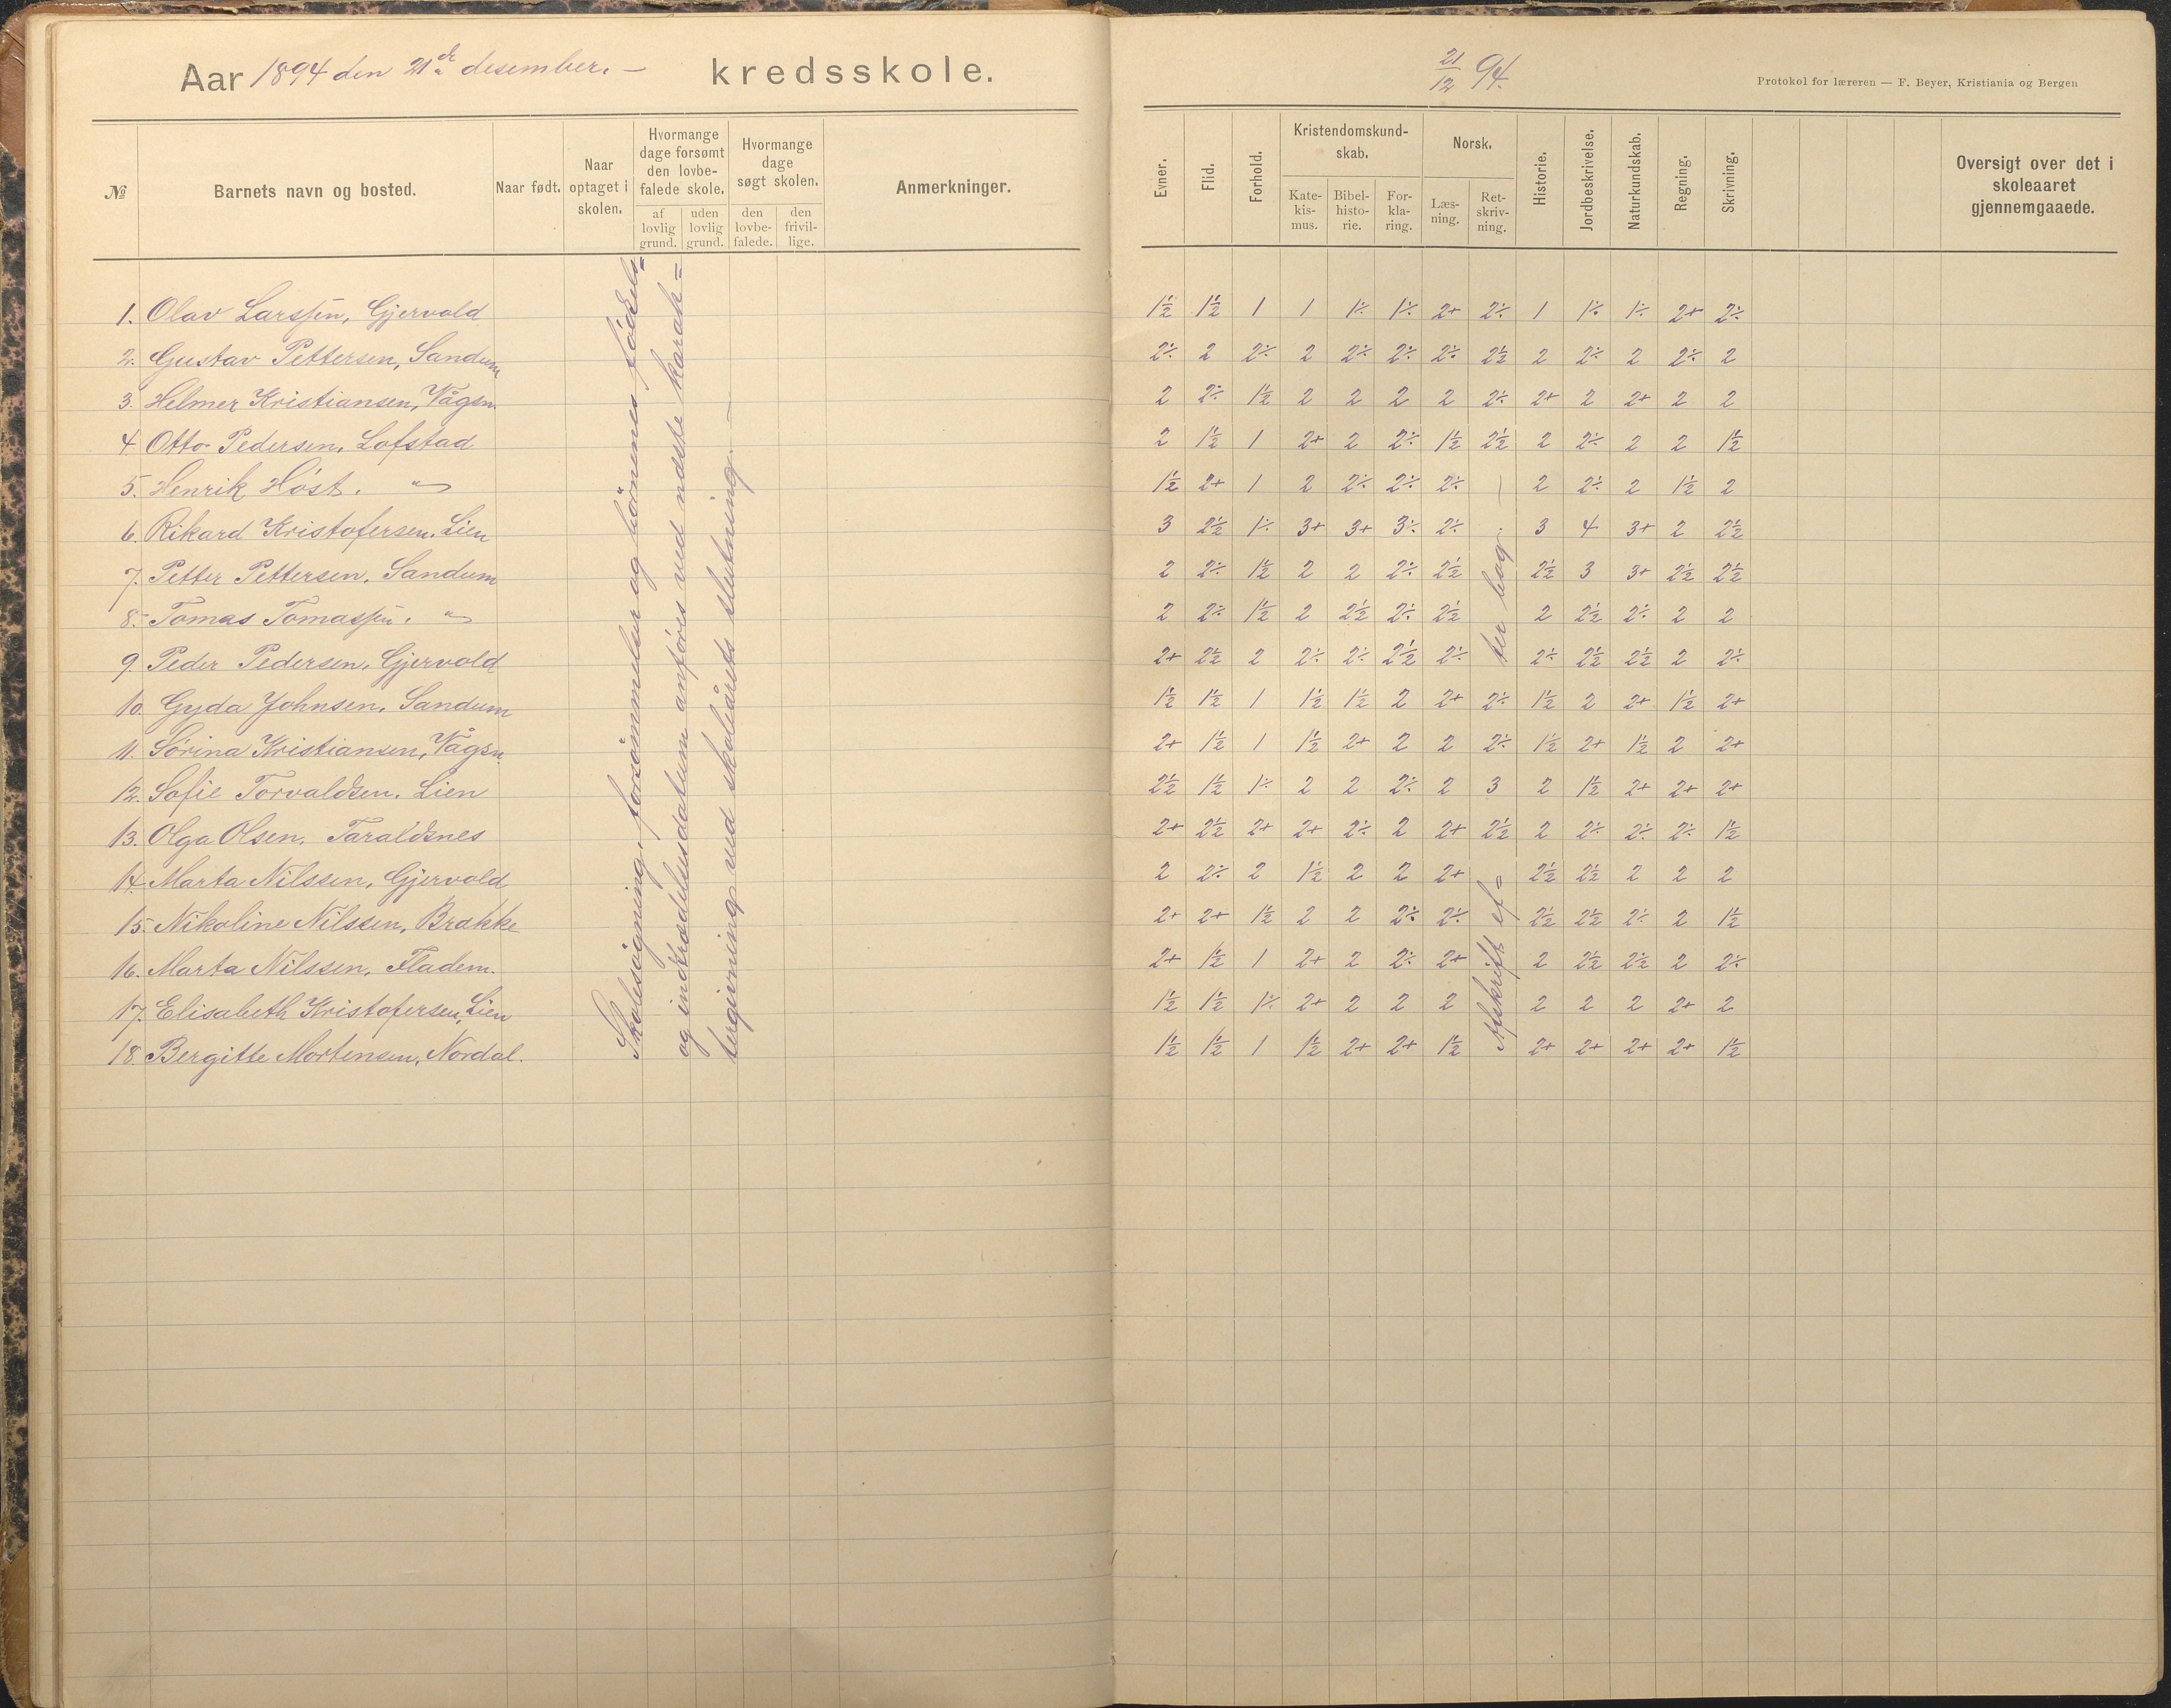 Aar 1894 den 21de desember. — kredsskole.
№
Barnets navn og bosted.
Naar født.
Naar optaget i skolen.
Hvormange dage forsømt den lovbefalede skole.
af lovlig grund.
uden lovlig grund.
Hvormange dage søgt skolen.
den lovbefalede.
den frivillige.
Anmerkninger.
1. Olav Larssen, Gjervold
2. Gustav Pettersen, Sandum
3. Helmer Kristiansen, Vågsn.
4. Otto Pedersen, Lofstad
5. Henrik Höst. "
6. Rikard Kristofersen. Lien
7. Petter Pettersen. Sandum
8. Tomas Tomassen. "
9. Peder Pedersen, Gjervold
10. Gyda Johnsen, Sandum
11. Sörina Kristiansen, Vågsn.
12. Sofie Torvaldsen. Lien
13. Olga Olsen. Taraldsnes
14. Marta Nilssen, Gjervold
15. Nikoline Nilssen, Brakke
16. Marta Nilssen. Fladem.
17. Elisabeth Kristofersen, Lien
18. Bergitte Mortensen, Nordal.
Skolesögning, forsömmelser og börnenes födsels=
og indtrædelsesdatum anföres ved næste karak=
tergivning ved skoleårets slutning. —
21/12 94.
Protokol for læreren — F. Beyer, Kristiania og Bergen
Evner. Flid. Forhold. Kristendomskundskab. Norsk. Historie. Jordbeskrivelse. Naturkundskab. Regning. Skrivning.
Katekismus. Bibelhistorie. Forklaring. Læsning. Retskrivning.
Oversigt over det i skoleaaret gjennemgaaede.
1½ 1½ 1 1 1÷ 1÷ 2+ 2÷ 1 1÷ 1÷ 2+ 2÷
2÷ 2 2÷ 2 2÷ 2÷ 2÷ 2½ 2 2÷ 2 2÷ 2
2 2÷ 1½ 2 2 2 2 2÷ 2+ 2 2+ 2 2
2 1½ 1 2+ 2 2÷ 1½ 2½ 2 2÷ 2 2 1½
1½ 2+ 1 2 2÷ 2÷ 2÷ 2 2÷ 2 1½ 2
3 2½ 1÷ 3+ 3+ 3÷ 2÷ 3 4 3+ 2 2½
2 2÷ 1½ 2 2 2÷ 2½ 2½ 3 3+ 2½ 2½
2 2÷ 1½ 2 2½ 2÷ 2½ 2 2½ 2÷ 2 2
2+ 2½ 2 2÷ 2÷ 2½ 2÷ 2÷ 2½ 2½ 2 2÷
1½ 1½ 1 1½ 1½ 2 2+ 2÷ 1½ 2 2+ 1½ 2+
2+ 1½ 1 1½ 2+ 2 2 2÷ 1½ 2+ 1½ 2 2+
2½ 1½ 1÷ 2 2 2÷ 2 3 2 1½ 2+ 2+ 2+
2+ 2½ 2+ 2+ 2÷ 2 2+ 2½ 2 2÷ 2÷ 2÷ 1½
2 2÷ 2 1½ 2 2 2+ 2½ 2½ 2 2 2
2+ 2+ 1½ 2 2 2÷ 2÷ 2½ 2½ 2÷ 2 1½
2+ 1½ 1 2+ 2 2÷ 2+ 2 2½ 2½ 2 2÷
1½ 1½ 1÷ 2+ 2 2 2 2 2 2 2+ 2
1½ 1½ 1 1½ 2+ 2+ 1½ 2+ 2+ 2+ 2+ 1½
Afskrift ef=
ter bog.